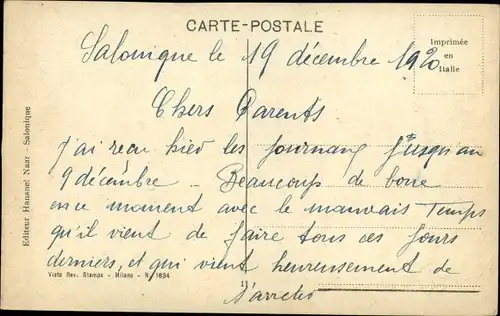 CARTE-POSTALE
Imprimée
en
Italie
Salonique le 19 décembre 1920
Chers Parents
J'ai recu hier les journaux jusqu'au
9 décembre - Beaucoup de boue
en ce moment avec le mauvais temps
qu'il vient de faire tous ces jours
derniers, et qui vient heureusement de
s'arreter
Editeur Hananel Naar - Salonique
Visto Rev. Stampa - Milano - N. 1634
11